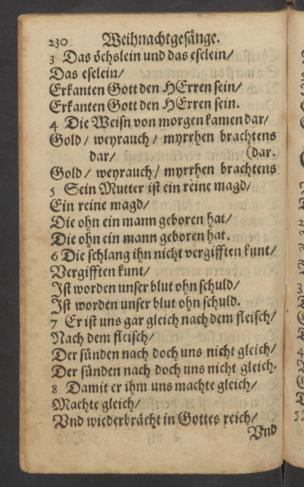 230 Weihnachtgesänge.
3 Das öchslein und das eselein/
Das eselein/
Erkanten Gott den HErren sein/
Erkanten Gott den HErren sein.
4 Die Weisn von morgen kamen dar/
Gold/ weyrauch/ myrrhen brachtens
dar/ (dar.
Gold/ weyrauch/ myrrhen brachtens
5 Sein Mutter ist ein reine magd/
Ein reine magd/
Die ohn ein mann geboren hat/
Die ohn ein mann geboren hat.
6 Die schlang ihn nicht vergifften kunt/
Vergifften kunt/
Ist worden unser blut ohn schuld/
Ist worden unser blut ohn schuld.
7 Er ist uns gar gleich nach dem fleisch/
Nach dem fleisch/
Der sünden nach doch uns nicht gleich/
Der sünden nach doch uns nicht gleich.
8 Damit er ihm uns machte gleich/
Machte gleich/
Vnd wiederbrächt in Gottes reich/
Vnd